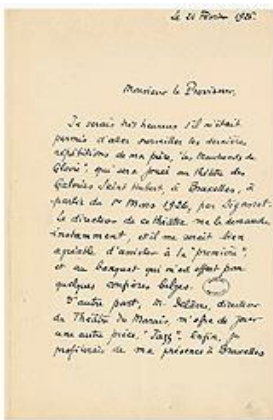 le 21 Février 1926
Monsieur le Proviseur,
Je serais très heureux s'il m'était
permis d'aller surveiller les dernières
répétitions de ma pièce, "les Marchands de
Gloire", qui sera jouée au théâtre des
Galeries Saint Hubert, à Bruxelles, à
partir du 1er Mars 1926, par Signoret.
Le directeur de ce théâtre me le demande
instamment, et il me serait bien
agréable d'assister à la "première",
et au banquet qui m'est offert par
quelques confrères belges.
D'autre part, M. Delène, directeur
du Théâtre du Marais, m'offre de jouer
une autre pièce, "Jazz". Enfin, je
profiterais de ma présence à Bruxelles